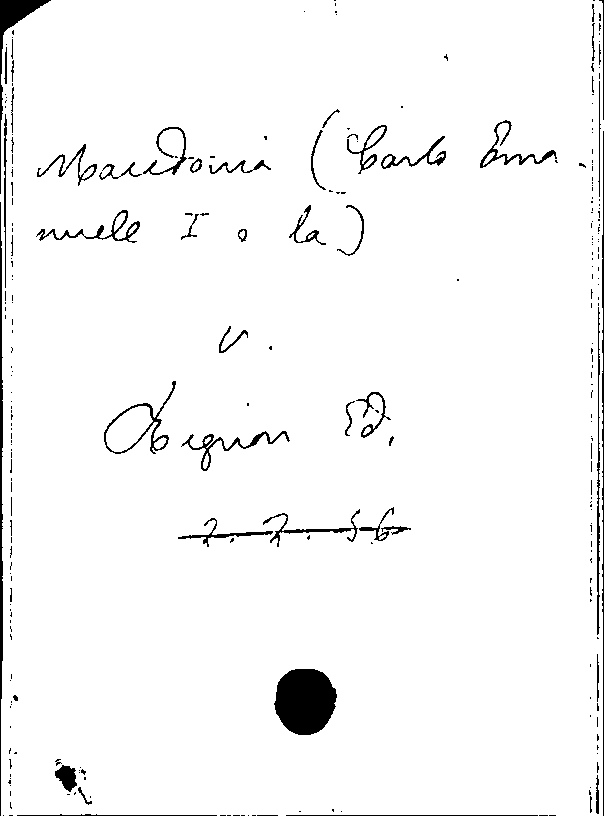 Macedonia (Carlo Ema-
nuele I e la)
v.
Rignon Ed.
2. 2. 56